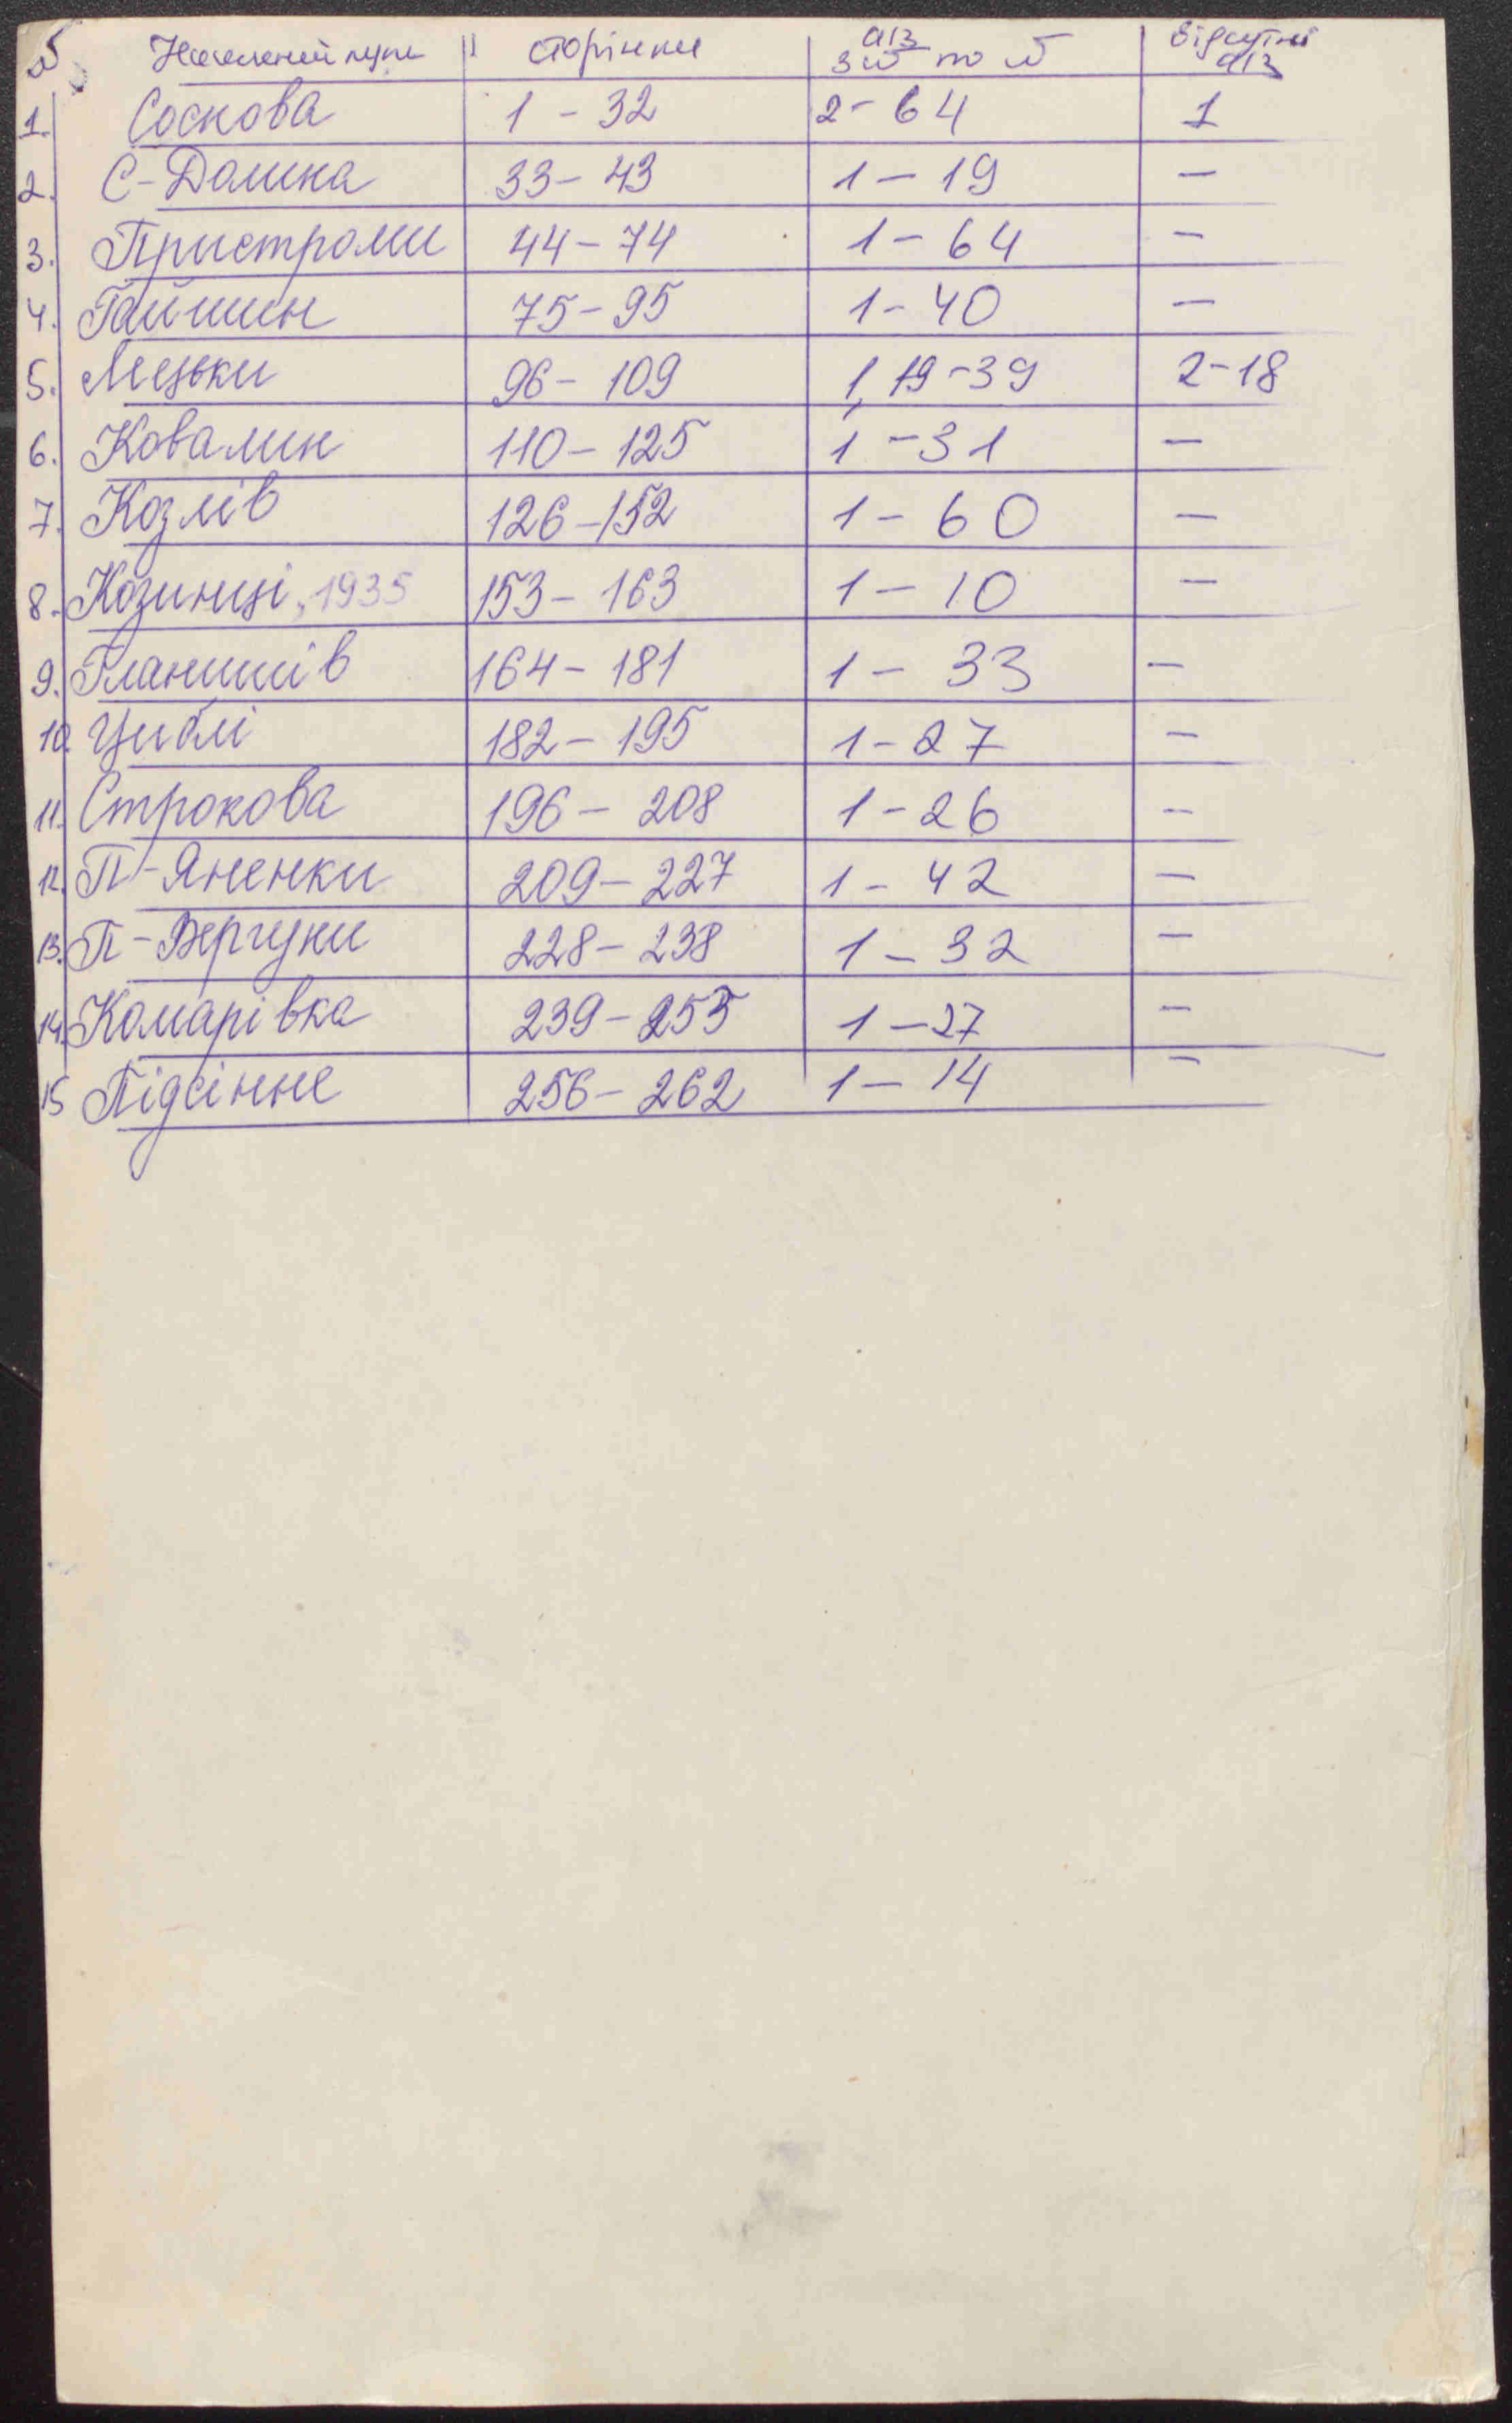 № Населений пунк сторінки а/з з № по № відсутні а/з
1. Соскова 1 - 32 2 - 64 1
2. С-Долина 33 - 43 1 - 19 -
3. Пристроми 44 - 74 1 - 64 -
4. Гайшин 75 - 95 1 - 40 -
5. Мецьки 96 - 109 1, 19 - 39 2 - 18
6. Ковалин 110 - 125 1 - 31 -
7. Козлів 126 - 152 1 - 60 -
8. Козинці, 1935 153 - 163 1 - 10 -
9. Гланишів 164 - 181 1 - 33 -
10. Циблі 182 - 195 1 - 27 -
11. Строкова 196 - 208 1 - 26 -
12. П-Яненки 209 - 227 1 - 42 -
13. П-Вергуни 228 - 238 1 - 32 -
14. Комарівка 239 - 255 1 - 27 -
15 Підсінне 256 - 262 1 - 14 -